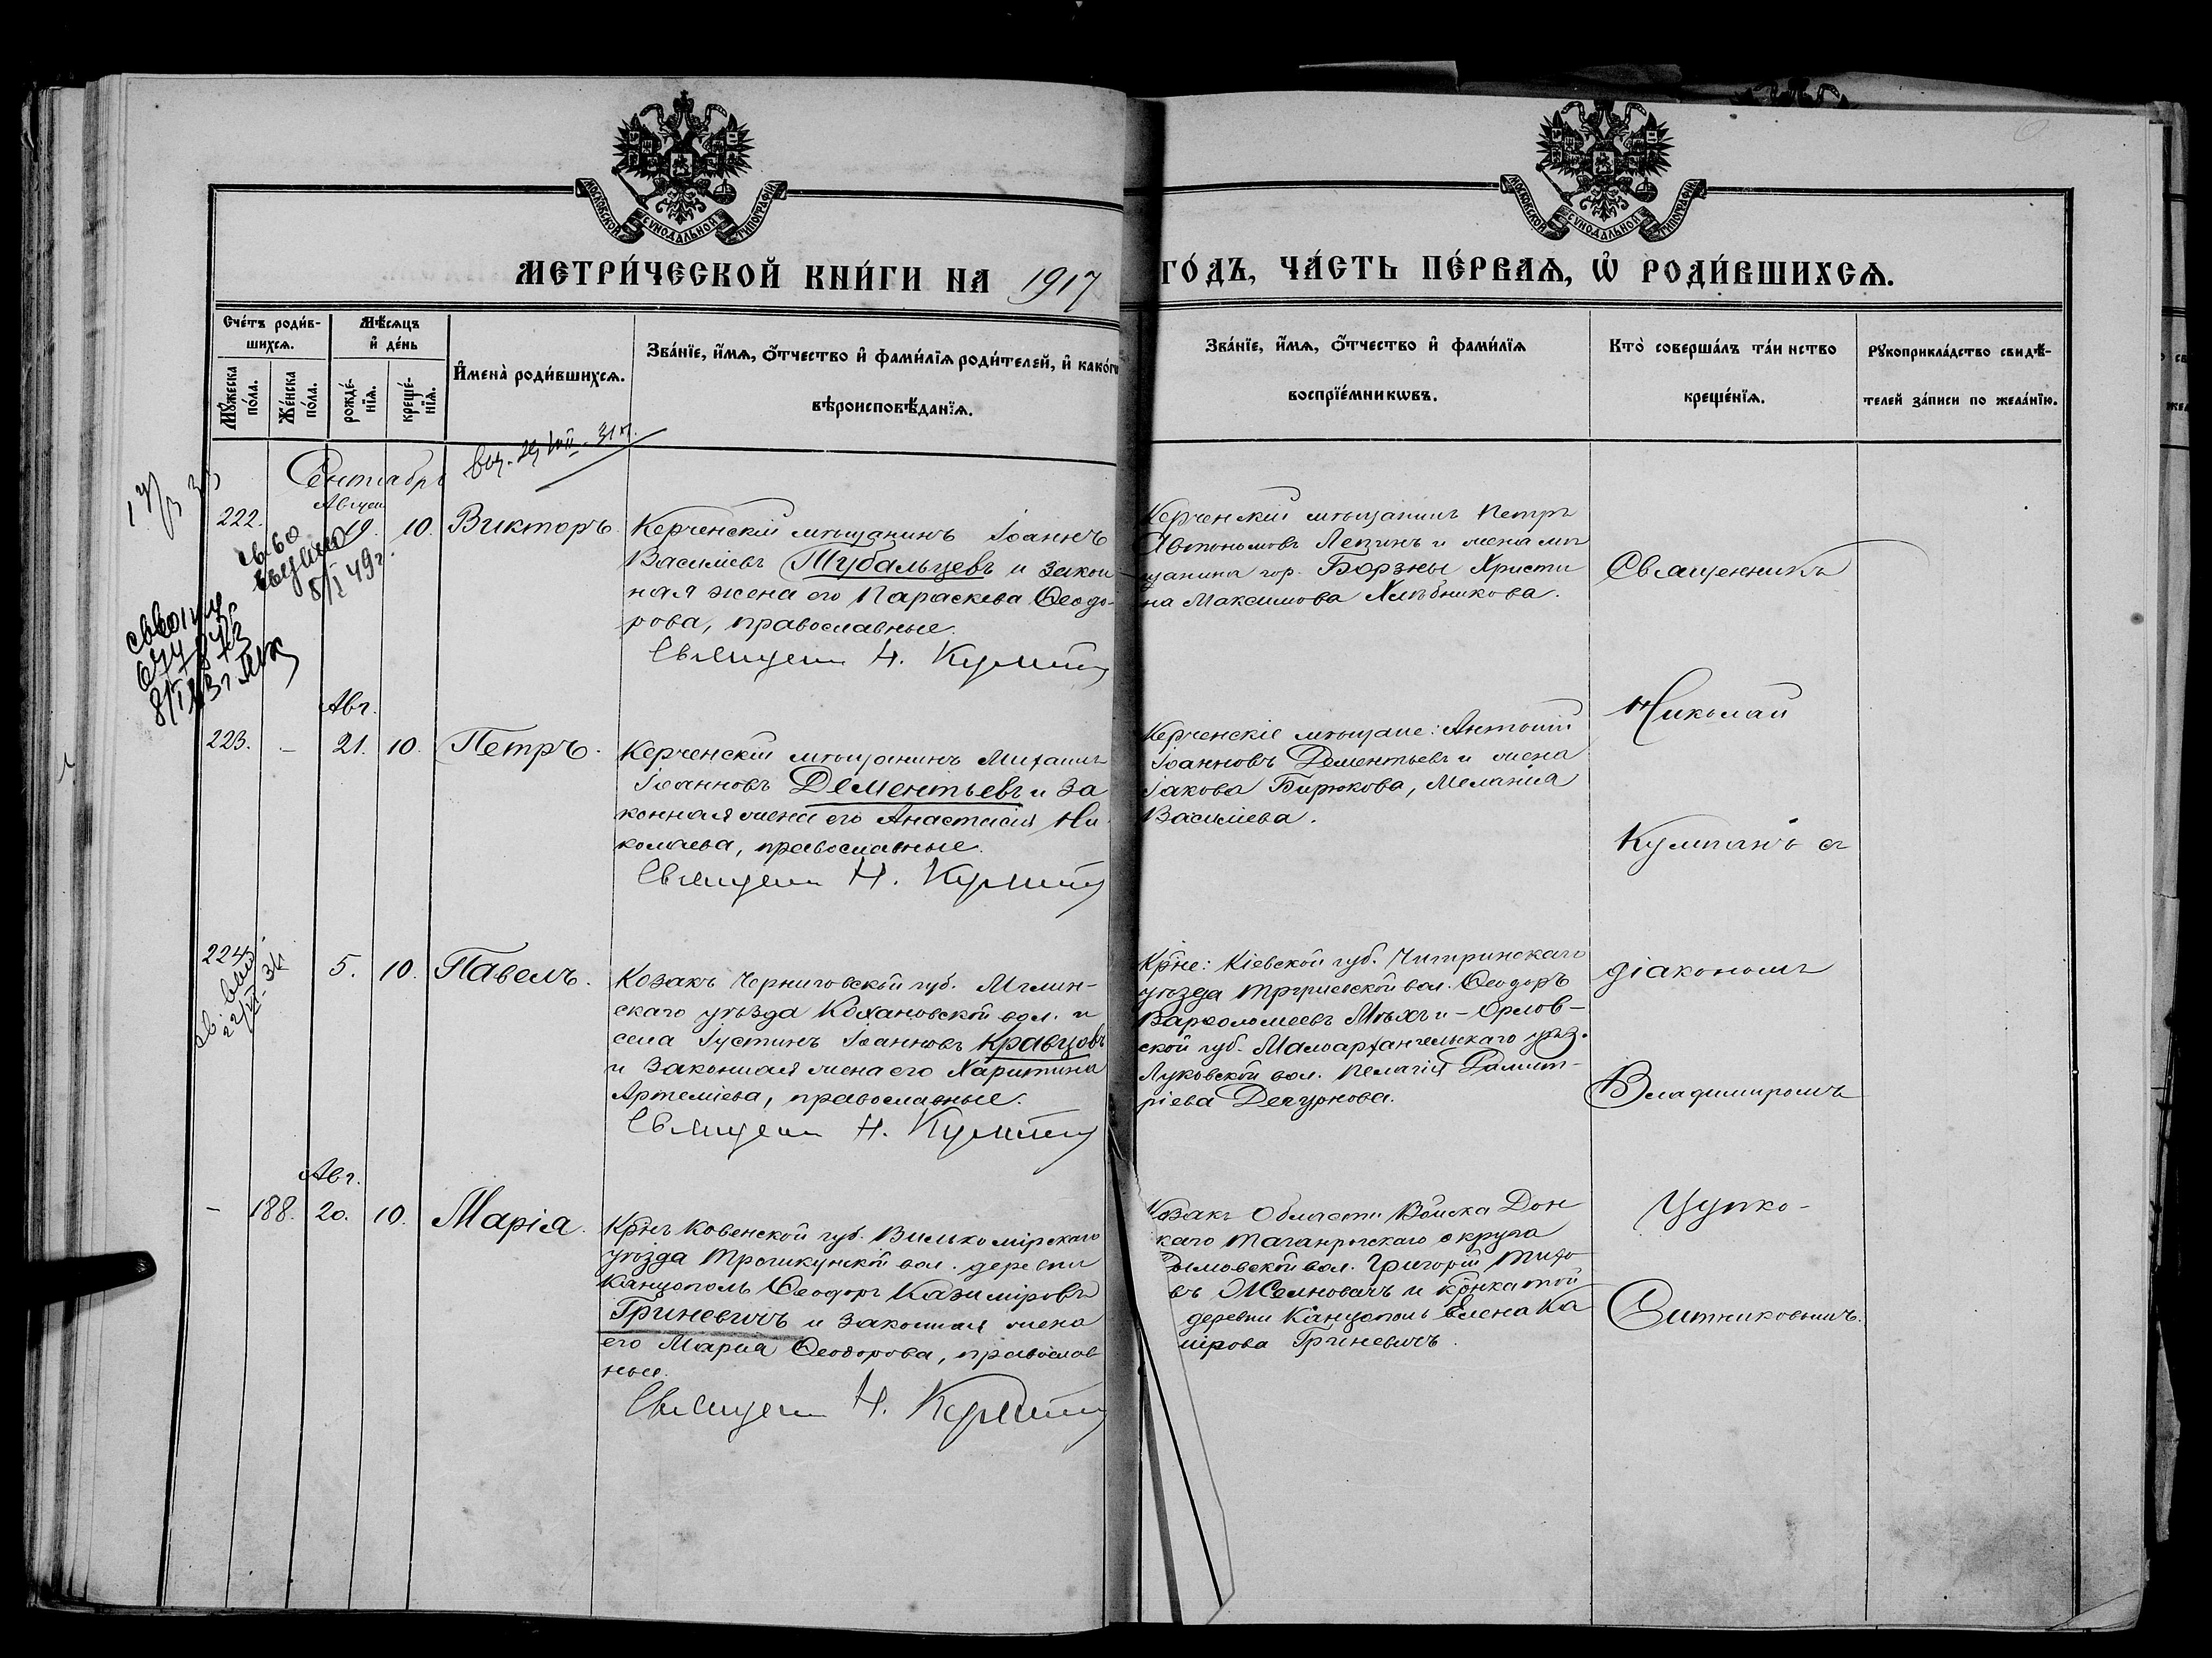 МОСКОВСКОЙ СУНОДАЛЬНОЙ ТИПОГРАФІИ
МОСКОВСКОЙ СУНОДАЛЬНОЙ ТИПОГРАФІИ
МЕТРИ́ЧЕСКОЙ КНИ́ГИ НА 1917
ГО́ДЪ, ЧА́СТЬ ПЕ́РВАѦ, Ѽ РОДИ́ВШИХСѦ.
Сче́тъ роди́в-
шихсѧ.
Мѣ́сѧцъ
и де́нь
Мꙋ́жеска по́ла.
Же́нска по́ла.
рожде́-
нїѧ.
креще́-
нїѧ.
И҆мена̀ роди́вшихсѧ.
Зва́нїе, и҆́мѧ, ѻ҆́тчество и҆ фами́лїѧ роди́телей, и҆ како́гѡ
вѣроисповѣ́данїѧ.
Зва́нїе, и҆́мѧ, ѻ҆́тчество и҆ фами́лїѧ
воспрїе́мникѡвъ.
Кто̀ соверша́лъ та́инство
креще́нїѧ.
Рꙋкоприкла́дство свидѣ́-
телей за́писи по жела́нїю.
Сентябрь
222.
Август
19.
10.
Викторъ.
Керченскій мѣщанинъ Іоаннъ
Василіевъ Тубальцевъ и закон-
ная жена его Параскева Ѳеодо-
рова, православные.
Священ Н. Кулмпан
Керченскій мѣщанинъ Петръ
Автономовъ Лепинъ и жена мѣ
щанина гор. Борзны Христи
на Максимова Хлѣбникова.
Священникъ
св-во
выдано
8/I 49г.
Авг.
223.
–
21.
10.
Петръ.
Керченскій мѣщанинъ Михаилъ
Іоанновъ Дементьевъ и за
конная жена его Анастасія Ни
колаева, православные.
Священ Н. Кулмпан
Керченскіе мѣщане: Антоній
Іоанновъ Дементьевъ и жена
Іакова Бирюкова, Меланія
Василіева.
Николай
Кулпанъ съ
224.
5.
10.
Павелъ.
Козакъ Черниговской губ. Мглин-
скаго уѣзда Кохановской вол. и
села Іустинъ Іоанновъ Кравцовъ
и законная жена его Харитина
Артеміева, православные.
Священ Н. Кулмпан
Кр̃не: Кіевской губ. Чигиринскаго
уѣзда вол. Ѳеодоръ
Варѳоломеевъ Мѣхъ и – Орлов-
ской губ. Малоархангельскаго уѣз.
Луковской вол. Пелагія Димит-
ріева Декурнова.
діакономъ
Владимиромъ
Авг.
–
188.
20.
10.
Марія.
Кр̃нъ Ковенской губ. Вилкомірскаго
уѣзда Трошкунской вол. деревни
Канцополь Ѳеодоръ Казиміровъ
Гриневичъ и законная жена
его Марія Ѳеодорова, православ
ные.
Священ Н. Кулмпан
Козакъ Области Войска Дон
скаго Таганрогскаго округа
вол. Григорій Тихо
въ Желновачъ и кр̃нка той
деревни Канцополь Елена Ка
мірова Гриневичъ.
Цупко-
Ситниковымъ.